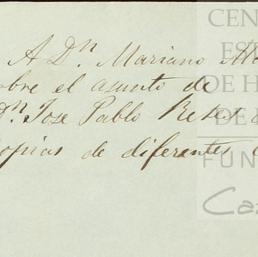 A Dⁿ. Mariano
sobre el asunto de
Dⁿ. Jose Pablo
Copias de diferentes
CEN
ES
DE H
DE
FUN
Ca